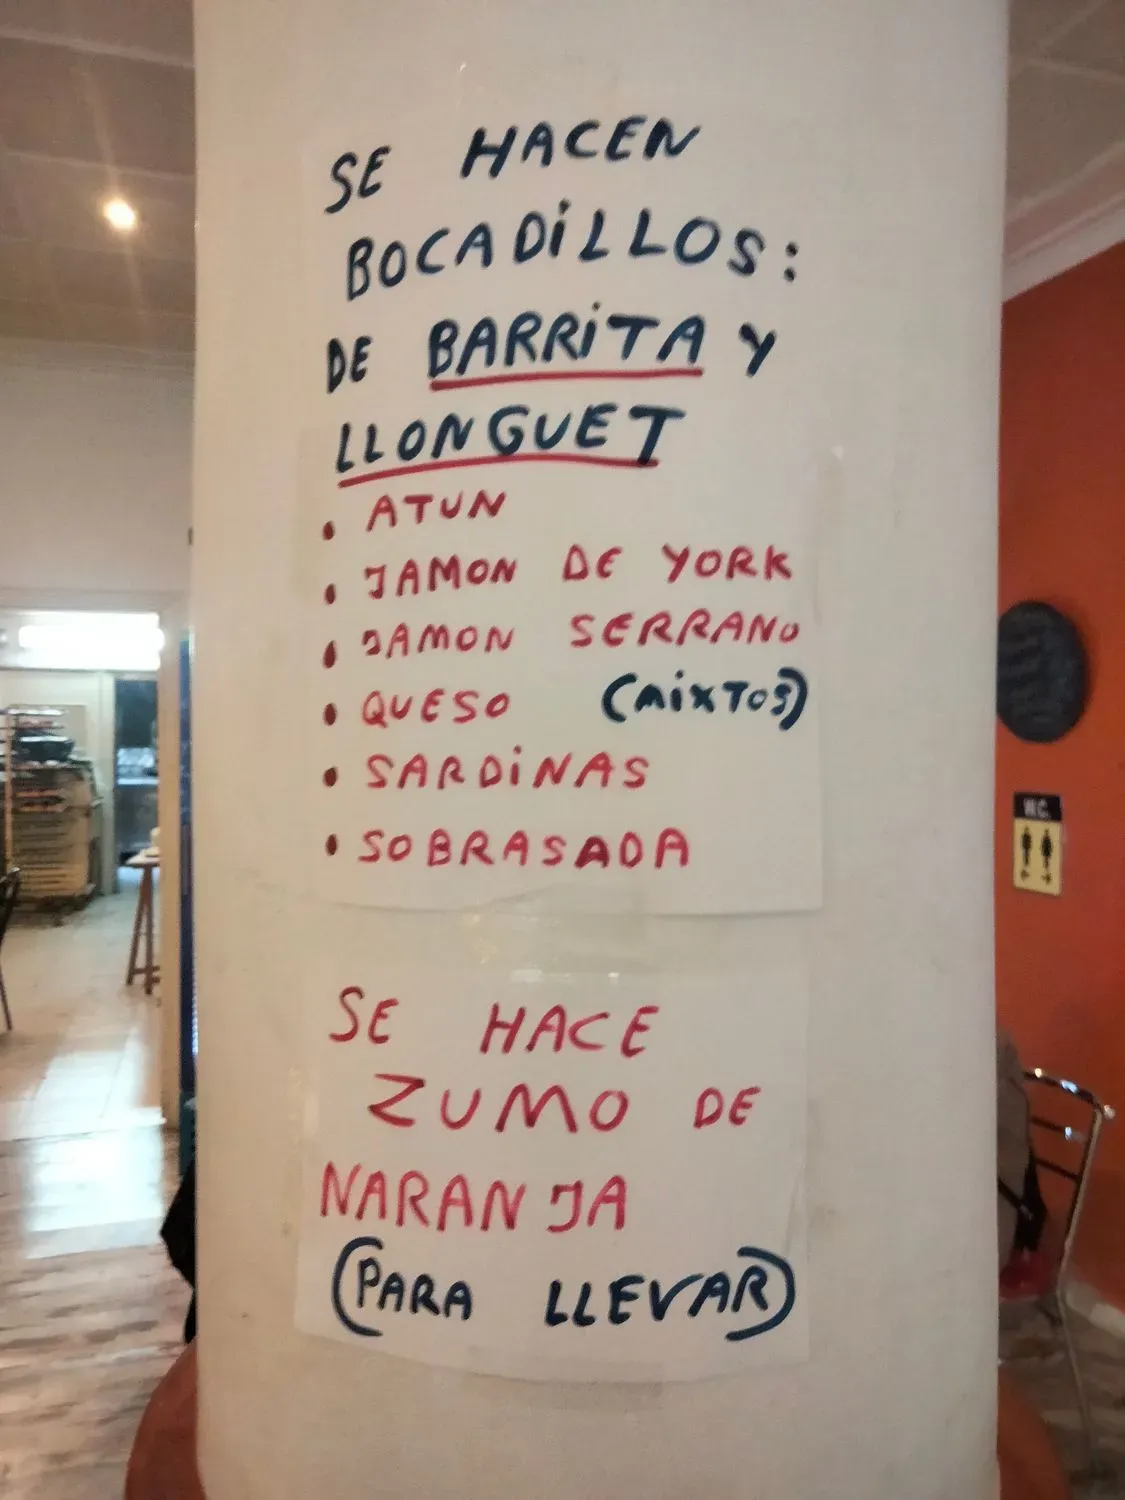 SE HACEN
BOCADiLLOS:
DE BARRiTA Y
LLONGUET
• ATUN
• JAMON DE YORK
• JAMON SERRANO
• QUESO (MiXTOS)
• SARDiNAS
• SOBRASADA
SE HACE
ZUMO DE
NARANJA
(PARA LLEVAR)
W.C.